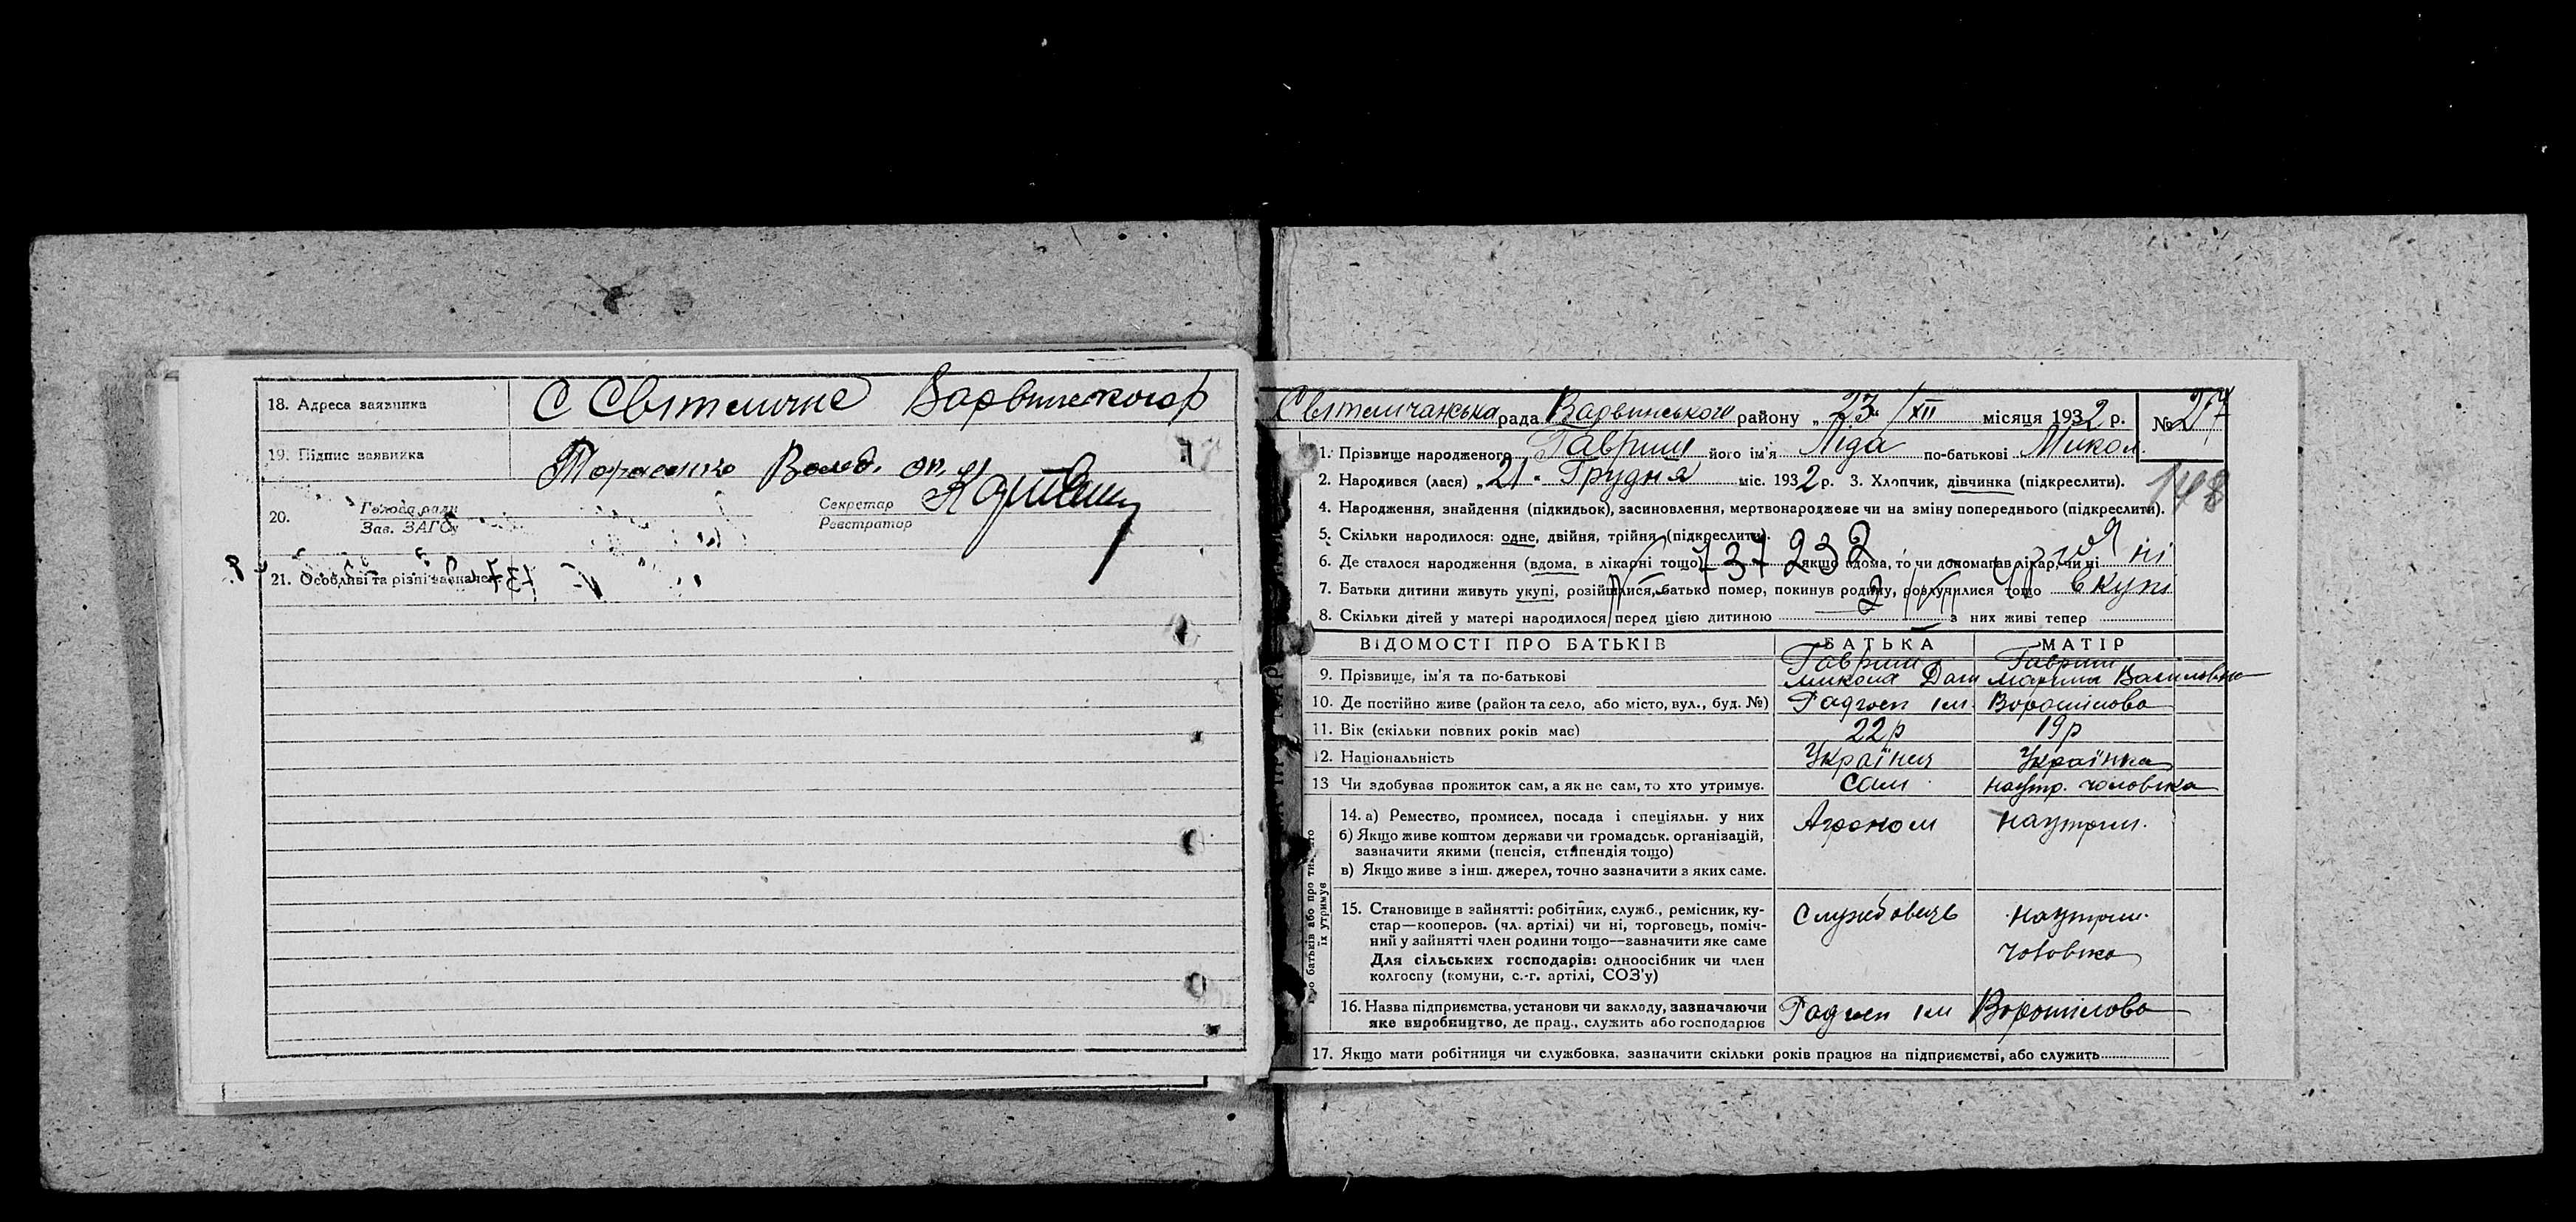 18. Адреса заявника С Світличне Варвинського р
19. Підпис заявника Тарасенко Волод.
20. Голова ради
Зав. ЗАГСу
Секретар
Реєстратор
21. Особливі та різні зазначен.
Світличанська рада Варвинського району „23“ / XII місяця 1932 р. № 27
1. Прізвище народженого Гавриш його ім'я Ліда по-батькові Микол.
148
2. Народився (лася) „21“ Грудня міс. 1932 р. 3. Хлопчик, дівчинка (підкреслити).
4. Народження, знайдення (підкидьок), засиновлення, мертвонароджене чи на зміну попереднього (підкреслити).
5. Скільки народилося: одне, двійня, трійня (підкреслити).
6. Де сталося народження (вдома, в лікарні тощо) якщо вдома, то чи допомагав лікар, чи ні ні
737 232
7. Батьки дитини живуть укупі, розійшлися, батько помер, покинув родину, розлучилися тощо вкупі
8. Скільки дітей у матері народилося перед цією дитиною — з них живі тепер
ВІДОМОСТІ ПРО БАТЬКІВ БАТЬКА МАТІР
9. Прізвище, ім'я та по-батькові Гавриш Микола Дан Гавриш Марина Василовна
10. Де постійно живе (район та село, або місто, вул., буд. №) Радгосп ім Ворошилова
11. Вік (скільки повних років має) 22р 19р
12. Національність Українец Українка
13 Чи здобуває прожиток сам, а як не сам, то хто утримує. Сам на утр. чоловіка
14. а) Ремество, промисел, посада і спеціяльн. у них Агроном на утрим.
б) Якщо живе коштом держави чи громадськ. організацій,
зазначити якими (пенсія, стипендія тощо)
в) Якщо живе з інш. джерел, точно зазначити з яких саме.
15. Становище в зайнятті: робітник, служб., ремісник, ку-
стар—кооперов. (чл. артілі) чи ні, торговець, поміч-
ний у зайнятті член родини тощо—зазначити яке саме
Для сільських господарів: одноосібник чи член
колгоспу (комуни, с.-г. артілі, СОЗ'у)
Службовець на утрим. чоловіка
16. Назва підприємства, установи чи закладу, зазначаючи
яке виробництво, де прац., служить або господарює
Радгосп ім Ворошилова
17. Якщо мати робітниця чи службовка, зазначити скільки років працює на підприємстві, або служить